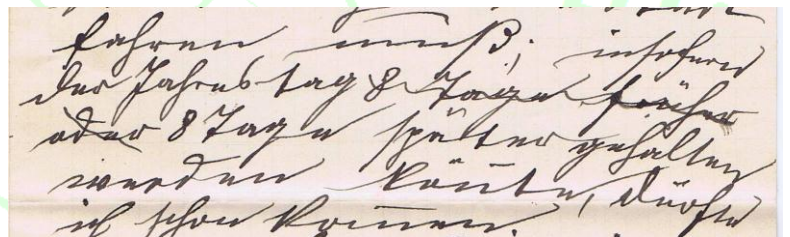 fahren muß; insofern
der Jahrestag 8 Tage früher
oder 8 Tage später gehalten
werden könnte, dürfte
ich schon kommen.